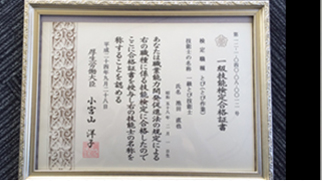 一級技能検定合格証書
検定職種 とび(とび作業)
技能士の名称 一級とび技能士
氏名
あなたは職業能力開発促進法の規定による
右の職種に係る技能検定に合格したので
ここに合格証書を授与し右の技能士の名称を
称することを認める
平成二十四年九月二十八日
厚生労働大臣 小宮山 洋子